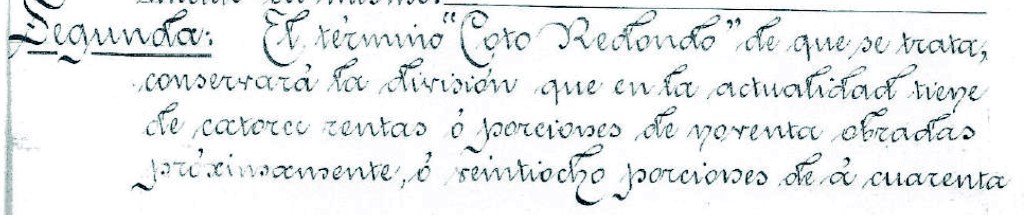 Segunda: El término "Coto Redondo" de que se trata,
conservará la división que en la actualidad tiene
de catorce rentas ó porciones de noventa obradas
próximamente, ó veintiocho porciones de á cuarenta